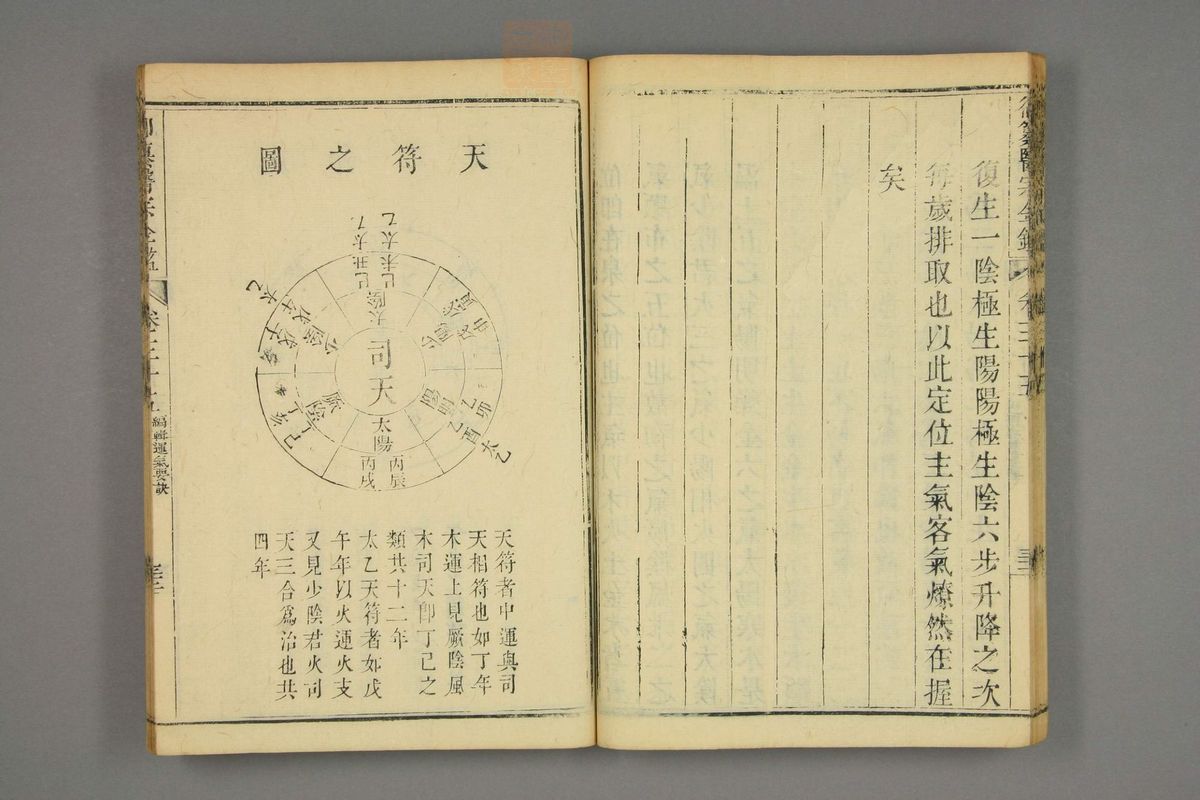 復生一陰極生陽陽極生陰六步升降之次
每歲排取也以此定位主氣客氣燎然在握
矣
天符之圖
司天
太陽
丙辰
丙戌
乙卯
乙酉太乙
天符者中運與司
天相符也如丁年
木運上見厥陰風
木司天卽丁巳之
類共十二年
太乙天符者如戊
午年以火運火支
又見少陰君火司
天三合爲治也共
四年
編輯運氣要訣